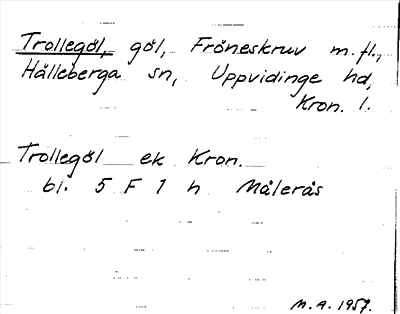 Trollegöl, göl, Fröneskruv m.fl.,
Hälleberga sn, Uppvidinge hd,
Kron. l.
Trollegöl ek Kron.
bl. 5 F 1 h Målerås
M.A. 1957.